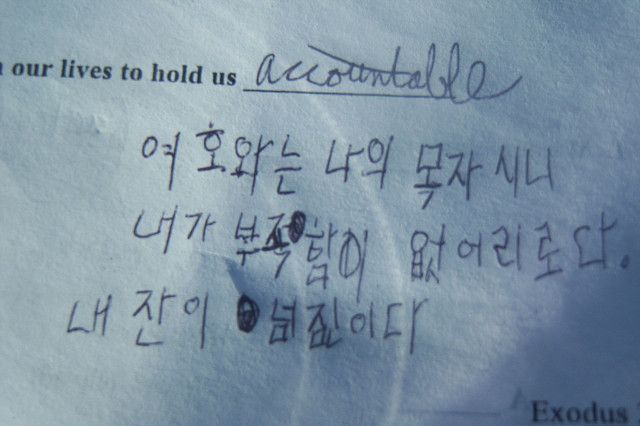 our lives to hold us accountable
여호와는 나의 목자시니
내가 부족함이 없어리로다.
내 잔이 넘짚이다
Exodus